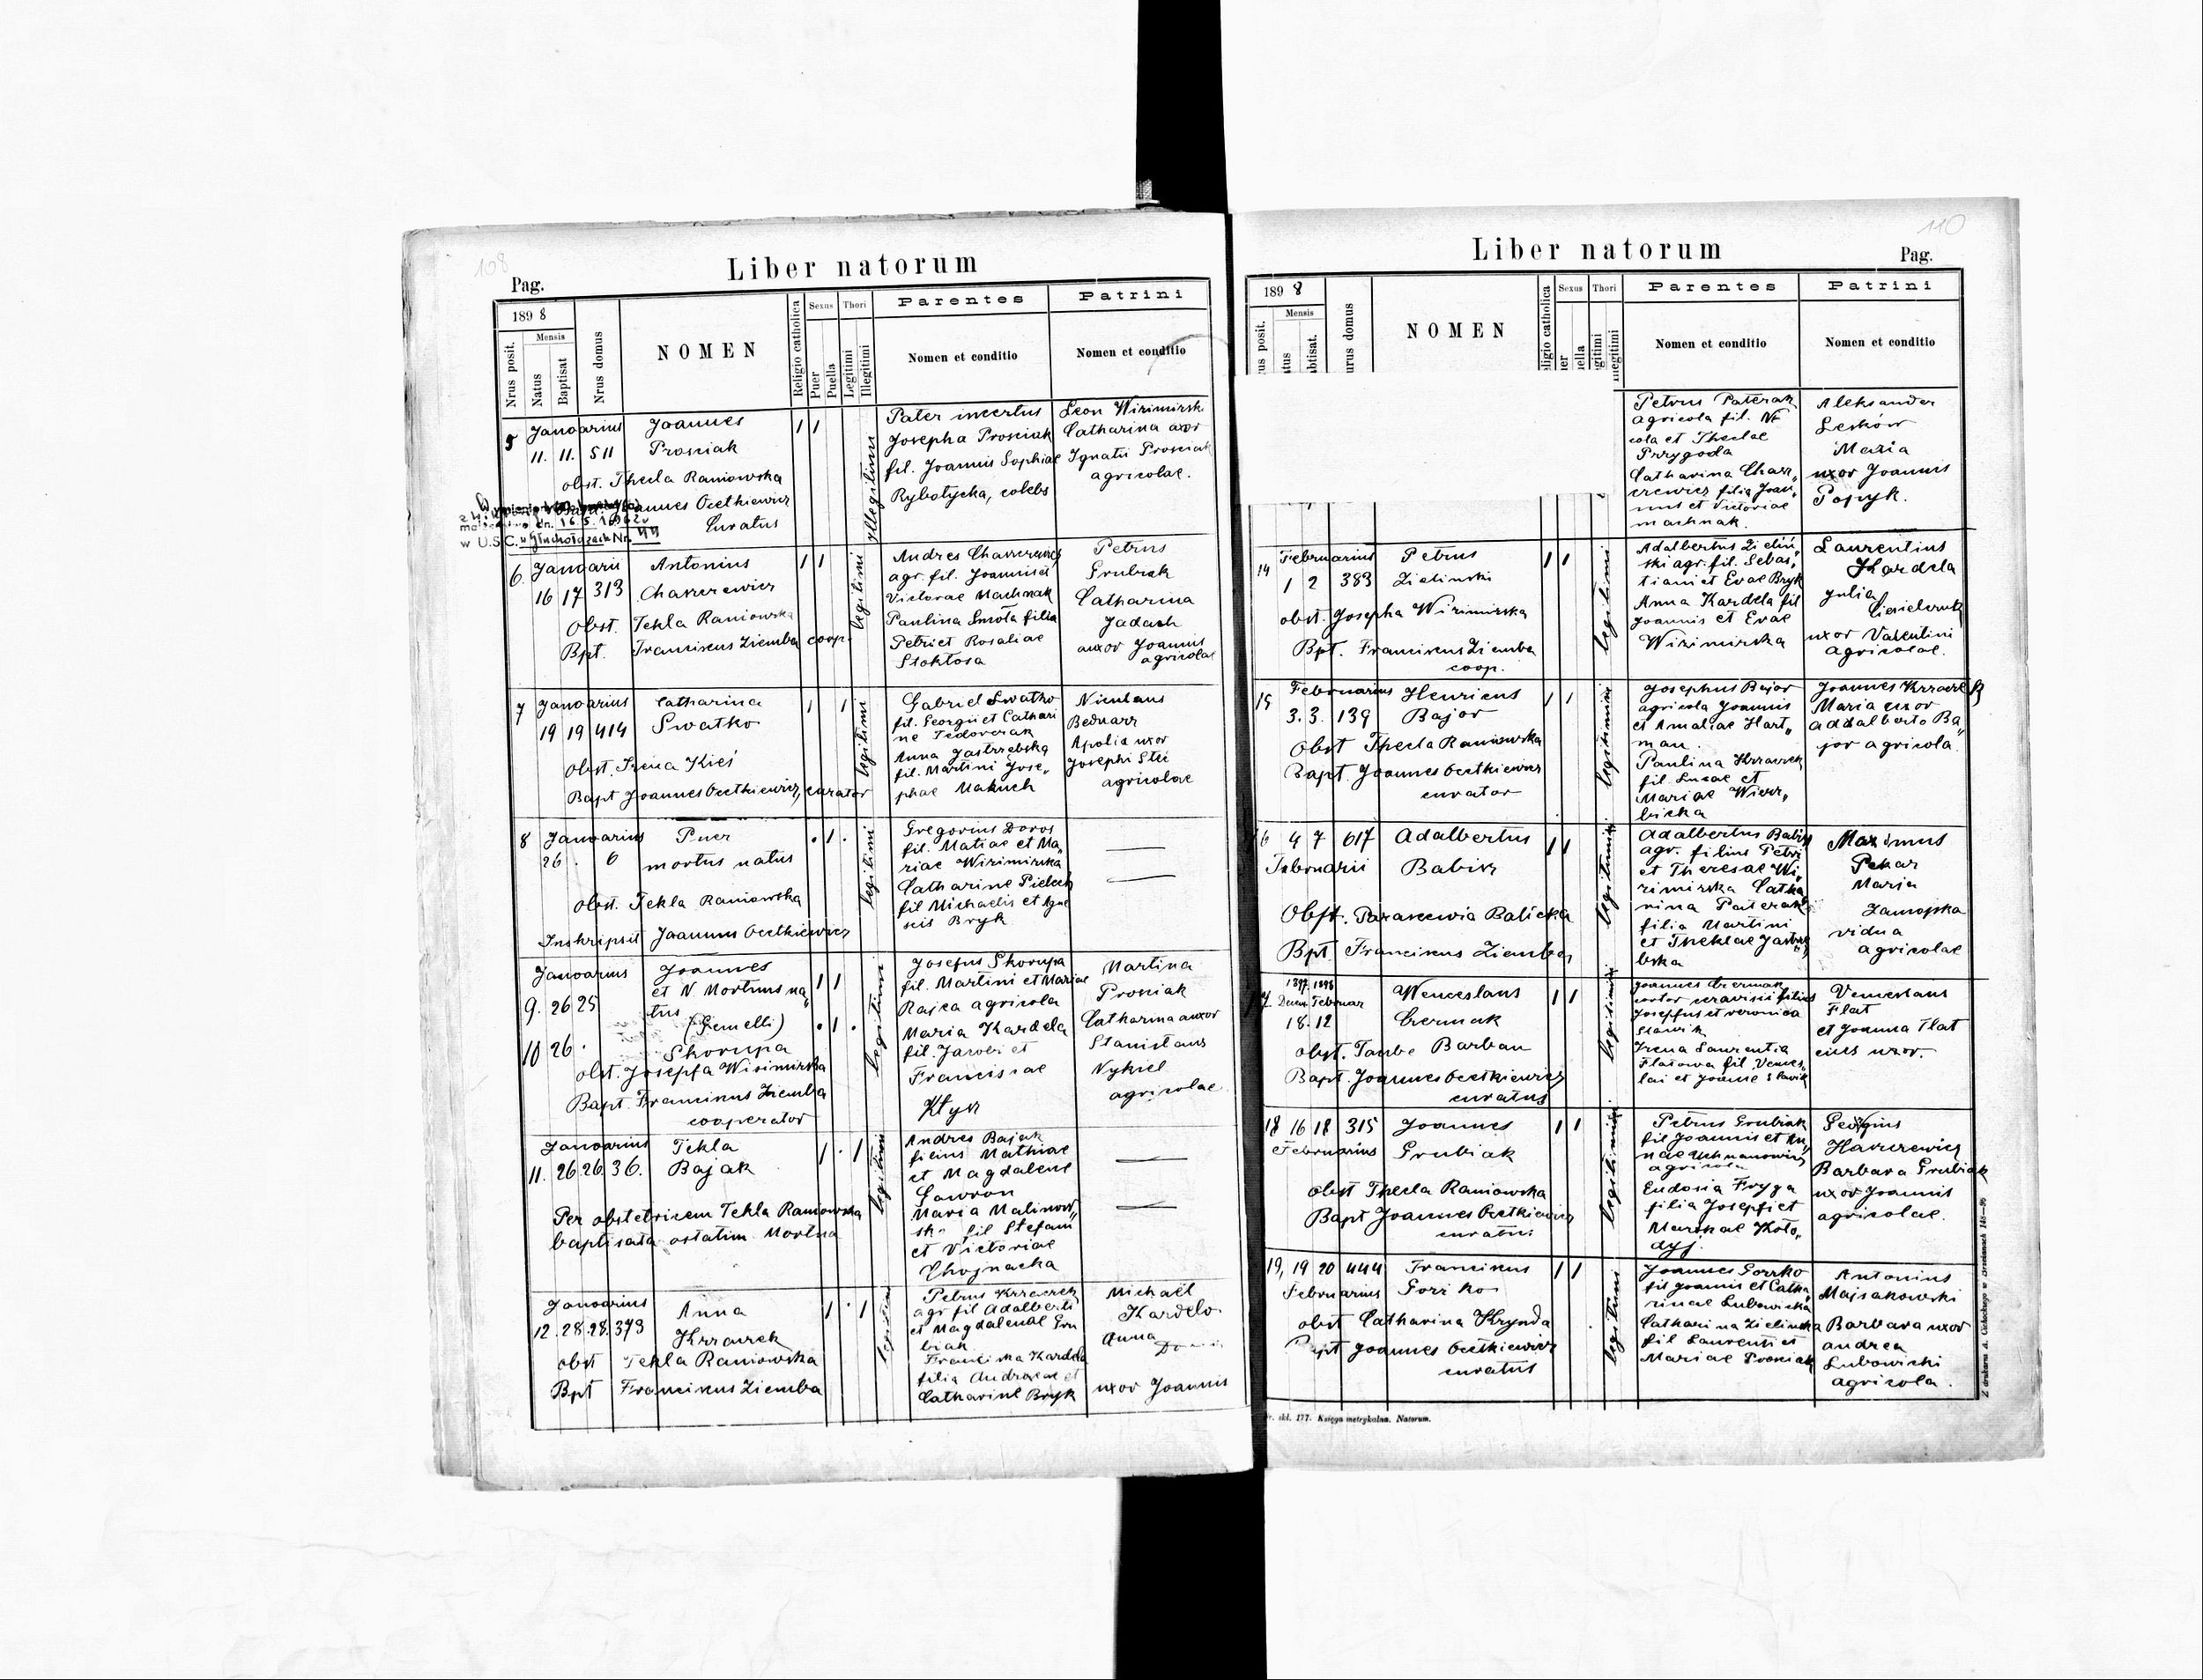 108
Liber natorum
Pag.
189 8
Mensis
Nrus posit.
Natus
Baptisat
Nrus domus
NOMEN
Religio catholica
Sexus
Puer
Puella
Thori
Legitimi
Illegitimi
Parentes
Nomen et conditio
Patrini
Nomen et conditio
5
Januarius
11. 11. 511
Joannes
Prosniak
obst. Thecla Raniowska
Joannes Ocetkiewicz
Curatus
16.5.1962
w U.S.C. w Głuchołazach Nr. 44
illegitimi
Pater incertus
Josepha Prosniak
fil. Joannis Sophiae
Rybotycka, coelebs
Leon Wizimirsk
Catharina uxor
Ignatii Prosniak
agricolae.
6.
Januarii
16 17 313
Antonius
Charzewicz
Obst. Tekla Raniowska
Bpt. Franciscus Ziemba coop.
legitimi
Andres
agr. fil. Joannis et
Victoriae Machnak
Paulina Smoła filia
Petri et Rosaliae
Stokłosa
Petrus
Grubiak
Catharina
Jadach
uxor Joannis
agricolae
7
Januarius
19 19 414
Catharina
Swatko
obst. Irena Kieś
Bapt Joannes Ocetkiewicz, curator
legitimi
Gabriel Swatko
fil. Georgii et Cathari
ne Fedorczak
Anna Jastrzebska
fil. Martini Jose„
phae Makuch
Nicolaus
Bednarz
Apolia uxor
Josephi
agricolae
8
Januarius
26 . 6
Puer
mortus natus
obst. Tekla Raniowska
Inskripsit Joannes Ocetkiewicz
legitimi
Gregorius Doros
fil. Matiae et Ma„
riae Wizimirska
Catharine Pielech
fil Michaelis et Agne
scis Bryk
Januarius
9. 26 25
Joannes
et N Mortuus na„
tus
(Gemelli)
10 26 .
Skorupa
obst. Josepfa Wisimirska
Bapt. Franciscus Ziemba
cooperator
legitimi
Josefus Skorupa
fil. Martini et Mariae
Rajca agricola
Maria Kardela
fil. Jacobi et
Franciscae
Kłyż
Martina
Prosniak
Catharina uxor
Stanislaus
Nykiel
agricolae
Januarius
11. 26. 26. 36.
Tekla
Bajak
Per obstetricem Tekla Raniowska
baptisata ostatim Mortua
legitimi
Andres Bajak
filius Mathiae
et Magdalene
Gawron
Maria Malinow„
ska fil Stefani
et Victoriae
Chojnacka
Januarius
12. 28. 28. 373
Anna
Krzaczek
obst Tekla Raniowska
Bpt Franciscus Ziemba
Petrus Krzaczek
agr fil Adalberti
et Magdalenae Gru
biak
Franciska Kardela
filia Andreae et
Catharine Bryk
Michael
Kardela
Anna
uxor Joannis
110
Liber natorum
Pag.
189 8
Mensis
NOMEN
Sexus
Thori
Parentes
Nomen et conditio
Patrini
Nomen et conditio
Petrus Paterak
agricola fil. Ni
cola et Theclae
Przygoda
Catharina Char„
zewicz filia Joan„
nis et Victoriae
machnak.
Aleksander
Lesków
Maria
uxor Joannis
Popyk.
14
Februarius
1 2 383
Petrus
Zielinski
obst. Josepha Wizimirska
Bpt. Franciscus Ziemba
coop.
legitimi
Adalbertus Zieliń„
ski agr. fil. Sebas„
tiani et Evae Bryk
Anna Kardela fil
Joannis et Evae
Wizimirska
Laurentius
Kardela
Julia
uxor Valentini
agricolae.
15
Februarius
3. 3. 139
Henricus
Bajor
Obst Thecla Raniowska
Bapt. Joannes Ocetkiewicz
curator
legitimi
Josephus Bajor
agricola Joannis
et Amaliae Hart„
man.
Paulina Krzaczek
fil. Lucae et
Mariae Wierz„
bicka
Joannes Krzaczek
Maria uxor
addalberto Ba„
jor agricola.
16
4 7 617
Februarii
Adalbertus
Babisz
Obst. Parascewia Balicka
Bpt Franciscus Ziemba
legitimi
Adalbertus Babisz
agr. filius Petri
et Theresae Wi„
zimirska Catha
rina Paterak
filia Martini
et Theklae Jastrz„
bska
Maximus
Pekar
Maria
Zamojska
vidua
agricolae
17
1897. 1898
Decem Februar
18. 12
Wenceslaus
Czermak
obst. Taube Barban
Bapt. Joannes Ocetkiewicz
curatus
legitimi
Joannes Czermak
filius
Josepfus et veronica
Slawik
Irena Laurentia
Flatowa fil Vences„
lai et Joanne Slavik
Venceslaus
Flat
et Joanna Flat
eius uxor.
18 16 18 315
Februarius
Joannes
Grubiak
obst Thecla Raniowska
Bapt Joannes Ocetkiewicz
curatus
legitimi
Petrus Grubiak
fil Joannis et An„
nae Uchmanowicz
agricola
Eudosia Fryga
filia Josepfi et
Mariae Koło„
dyj.
Georgius
Harzewicz
Barbara Grubiak
uxor Joannis
agricolae.
19, 19 20 444
Februarius
Franciscus
Gorzko
obst Catharina Krynda
Bapt Joannes Ocetkiewicz
curatus
legitimi
Joannes Gorzko
fil Joannis et Catha„
rinae Lubowicka
Catharina Zielinska
fil Laurenti et
Mariae Prosniak
Antonius
Majsakowski
Barbara uxor
andrea
Lubowicki
agricola.
skl. 177. Księga metrykalna. Natorum.
Z drukarni A. Cichockiego w Brzozowie 148—96